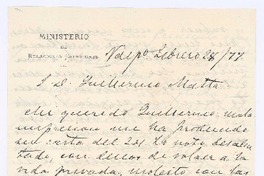 MINISTERIO
DE
RELACIONES EXTERIORES
Valpº Febrero 28/77
S. D. Guillermo Matta
Mi querido Guillermo, mala
impresion me ha producido
su carta del 23. La noto desalen
tado, con deseos de volver a la
vida privada, molesto con las